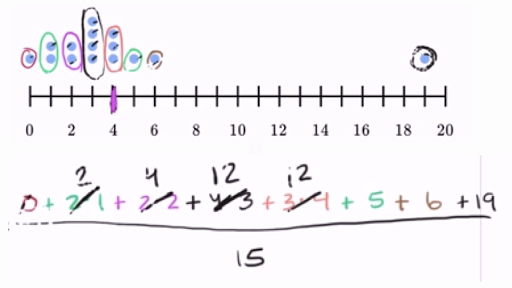 0 2 4 6 8 10 12 14 16 18 20
2 4 12 12
0 + 2·1 + 2·2 + 4·3 + 3·4 + 5 + 6 + 19
15